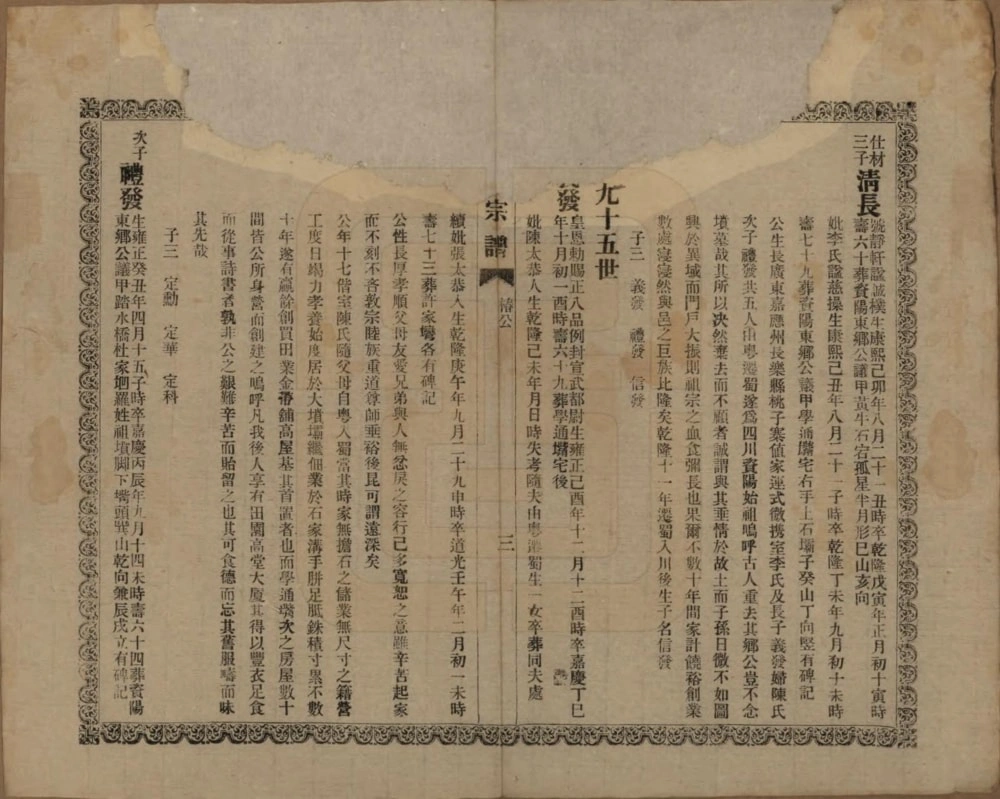 仕材
三子 清長
號靜軒諡誠樸生康熙己卯年八月二十一丑時卒乾隆戊寅年正月初十寅時
壽六十葬資陽東鄉公議甲黃牛石宕孤星半月形巳山亥向
妣李氏諡慈操生康熙己丑年八月二十一子時卒乾隆丁未年九月初十未時
壽七十九葬資陽東鄉公議甲學通壩宅右手上石壩子癸山丁向竪有碑記
公生長廣東嘉應州長樂縣桃子寨值家運式微携室李氏及長子義發婦陳氏
次子禮發共五人由粵遷蜀遂為四川資陽始祖嗚呼古人重去其鄉公豈不念
墳墓哉其所以決然棄去而不顧者誠謂與其垂情於故土而子孫日微不如圖
興於異域而門戶大振則祖宗之血食彌長也果爾不數十年間家計饒裕創業
數處寖寖然與邑之巨族比隆矣乾隆十一年遷蜀入川後生子名信發
子三 義發 禮發 信發
九十五世
發
皇恩勅賜正八品例封宣武都尉生雍正己酉年十二月十二酉時卒嘉慶丁巳
年十月初一酉時壽六十九葬學通壩宅後
妣陳太恭人生乾隆己未年月日時失考隨夫由粵遷蜀生一女卒葬同夫處
宗譜 椿公 三
續妣張太恭人生乾隆庚午年九月二十九申時卒道光壬午年二月初一未時
壽七十三葬許家灣各有碑記
公性長厚孝順父母友愛兄弟與人無忿戾之容行已多寬恕之意雖辛苦起家
而不刻不吝敦宗睦族重道尊師垂裕後昆可謂遠深矣
公年十七偕室陳氏隨父母自粵入蜀當其時家無擔石之儲業無尺寸之籍營
工度日竭力孝養始度居於大墳壩繼佃業於石家溝手胼足胝銖積寸累不數
十年遂有贏餘創買田業金帶舖高屋基其首置者也而學通壩次之房屋數十
間皆公所身營而創建之嗚呼凡我後人享有田園高堂大廈其得以豐衣足食
而從事詩書者孰非公之艱難辛苦而貽留之也其可食德而忘其舊服疇而昧
其先哉
子三 定勳 定華 定科
次子 禮發
生雍正癸丑年四月十五子時卒嘉慶丙辰年九月十四未時壽六十四葬資陽
東鄉公議甲踏水橋杜家𡋾羅姓祖墳脚下嘴頭巽山乾向兼辰戌立有碑記